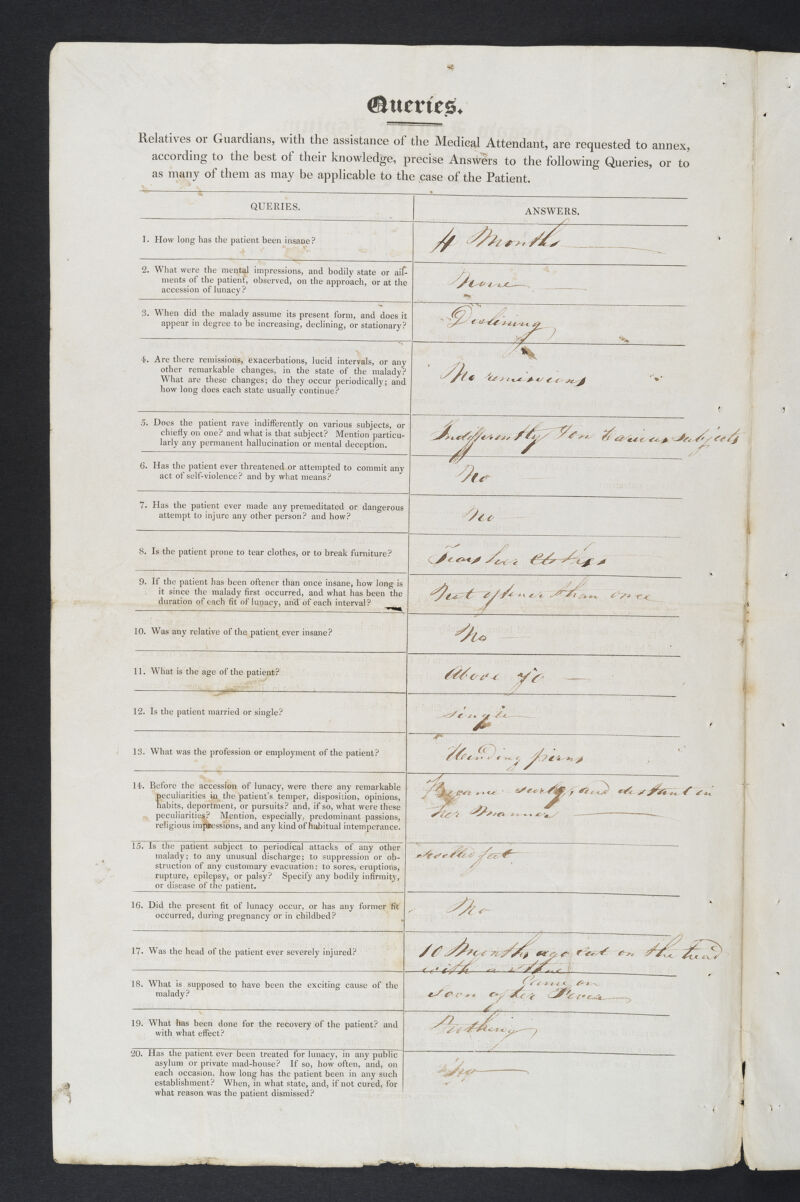 Queries.
Relatives or Guardians, with the assistance of the Medical Attendant, are requested to annex,
according to the best of their knowledge, precise Answers to the following Queries, or to
as many of them as may be applicable to the case of the Patient.
QUERIES.
ANSWERS.
1. How long has the patient been insane?
4 Months
2. What were the mental impressions, and bodily state or ail-
ments of the patient, observed, on the approach, or at the
accession of lunacy?
None
3. When did the malady assume its present form, and does it
appear in degree to be increasing, declining, or stationary?
Declining
4. Are there remissions, exacerbations, lucid intervals, or any
other remarkable changes, in the state of the malady?
What are these changes; do they occur periodically; and
how long does each state usually continue?
No remissions
5. Does the patient rave indifferently on various subjects, or
chiefly on one? and what is that subject? Mention particu-
larly any permanent hallucination or mental deception.
Indifferently on various subjects
6. Has the patient ever threatened or attempted to commit any
act of self-violence? and by what means?
No
7. Has the patient ever made any premeditated or dangerous
attempt to injure any other person? and how?
No
8. Is the patient prone to tear clothes, or to break furniture?
Tears her Clothes
9. If the patient has been oftener than once insane, how long is
it since the malady first occurred, and what has been the
duration of each fit of lunacy, and of each interval?
Not oftener than once
10. Was any relative of the patient ever insane?
No
11. What is the age of the patient?
Above
12. Is the patient married or single?
single
13. What was the profession or employment of the patient?
Winding pirns
14. Before the accession of lunacy, were there any remarkable
peculiarities in the patient's temper, disposition, opinions,
habits, deportment, or pursuits? and, if so, what were these
peculiarities? Mention, especially, predominant passions,
religious impressions, and any kind of habitual intemperance.
Became surly, and distant in
her Manner
15. Is the patient subject to periodical attacks of any other
malady; to any unusual discharge; to suppression or ob-
struction of any customary evacuation; to sores, eruptions,
rupture, epilepsy, or palsy? Specify any bodily infirmity,
or disease of the patient.
swelled feet
16. Did the present fit of lunacy occur, or has any former fit
occurred, during pregnancy or in childbed?
No
17. Was the head of the patient ever severely injured?
10 Months ago cut on the head
with a stone
18. What is supposed to have been the exciting cause of the
malady?
Came on
soon after Fever
19. What has been done for the recovery of the patient? and
with what effect?
Nothing
20. Has the patient ever been treated for lunacy, in any public
asylum or private mad-house? If so, how often, and, on
each occasion, how long has the patient been in any such
establishment? When, in what state, and, if not cured, for
what reason was the patient dismissed?
No